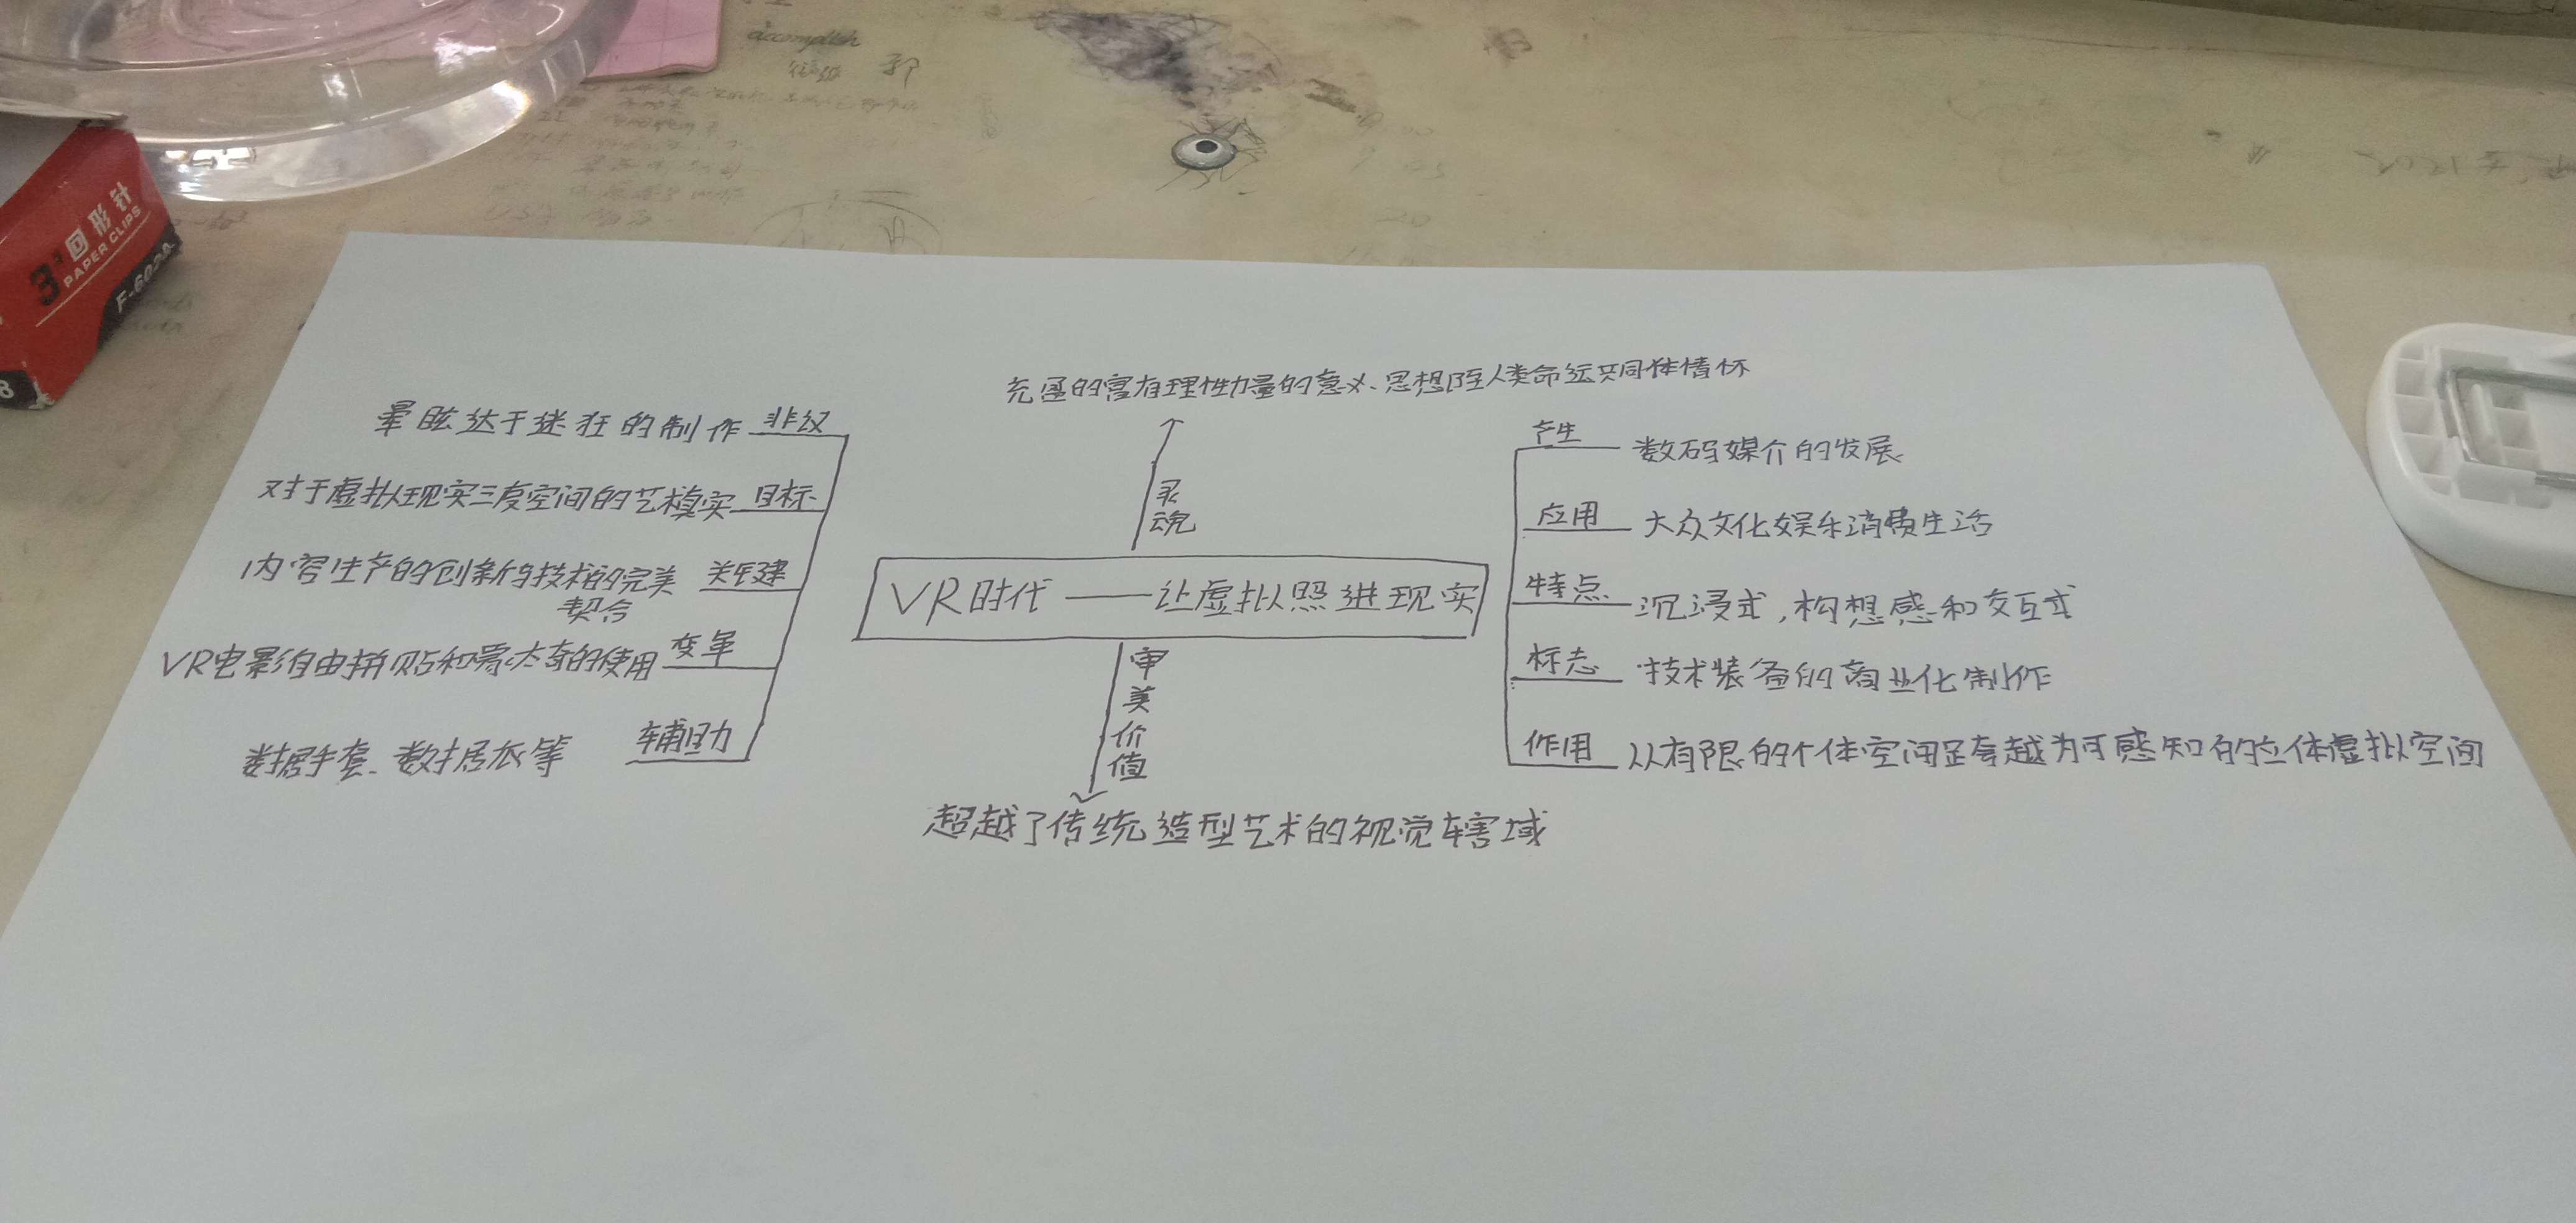 accomplish
3# 回形针
PAPER CLIPS
充盈的富有理性力量的意义、思想乃至人类命运共同体情怀
灵魂
晕眩达于迷狂的制作 非议
对于虚拟现实三度空间的艺术真实 目标
内容生产的创新与技术的完美 关键
契合
VR电影自由拼贴和蒙太奇的使用 变革
数据手套、数据衣等 辅助
VR时代——让虚拟照进现实
产生 数码媒介的发展
应用 大众文化娱乐消费生活
特点 沉浸式,构想感和交互式
标志 技术装备的商业化制作
作用 从有限的个体空间跨越为可感知的立体虚拟空间
审美价值
超越了传统造型艺术的视觉辖域